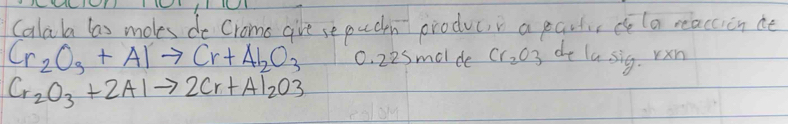 Calcula las moles de Cromo que se pueden producir a partir de la reacción de
Cr2O3 + Al → Cr + Al2O3 0.225mol de Cr2O3 de la sig. rxn
Cr2O3 + 2Al → 2Cr + Al2O3